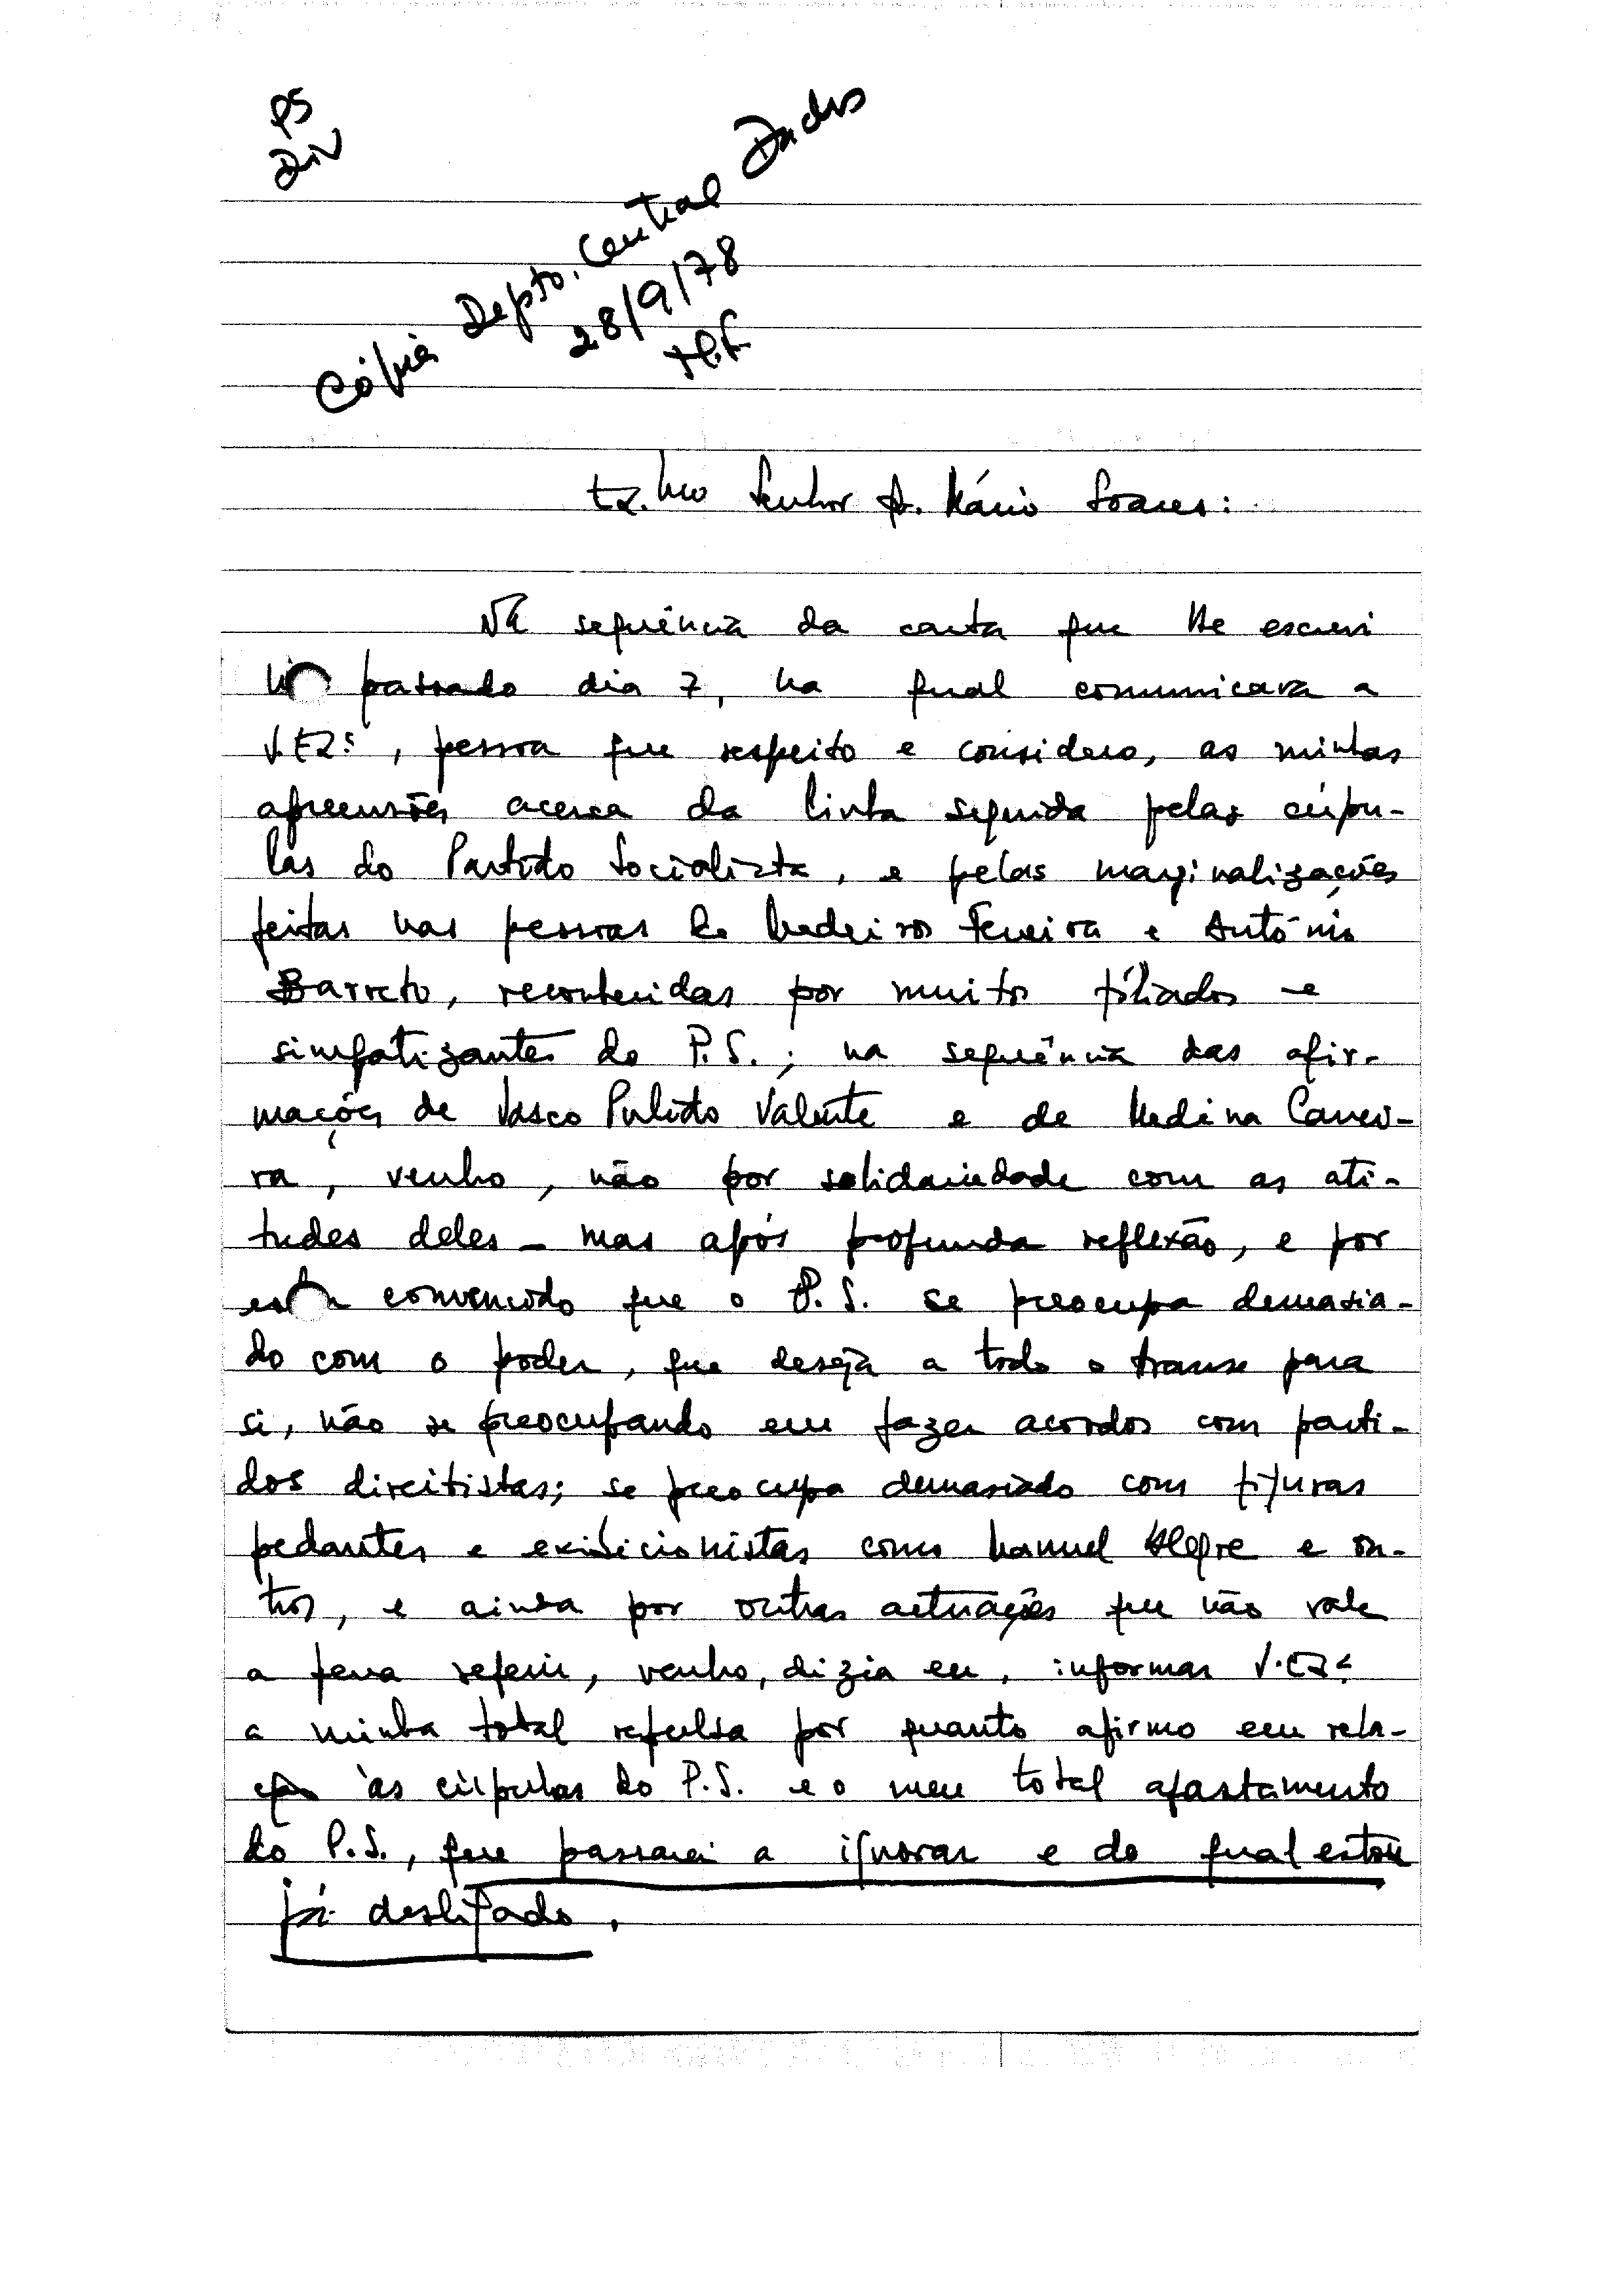 PS
Div
Cópia Depto. Central Dados
28/9/78
Ex.mo Senhor Dr. Mário Soares:
Na sequência da carta que lhe escrevi
no passado dia 7, na qual comunicava a
V. Ex.ª, pessoa que respeito e considero, as minhas
apreensões acerca da linha seguida pelas cúpu-
las do Partido Socialista, e pelas marginalizações
feitas nas pessoas de Medeiros Ferreira e António
Barreto, reconhecidas por muitos filiados e
simpatizantes do P.S.; na sequência das afir-
mações de Vasco Pulido Valente e de Medina Carrei-
ra, venho, não por solidariedade com as ati-
tudes deles - mas após profunda reflexão, e por
estar convencido que o P.S. se preocupa demasia-
do com o poder, que deseja a todo o transe para
si, não se preocupando em fazer acordos com parti-
dos direitistas; se preocupa demasiado com figuras
pedantes e exibicionistas como Manuel Alegre e ou-
tros, e ainda por outras actuações que não vale
a pena referir, venho, dizia eu, informar V. Ex.ª
a minha total repulsa por quanto afirmo em rela-
ção às cúpulas do P.S. e o meu total afastamento
do P.S., que passarei a ignorar e do qual estou
já desligado.